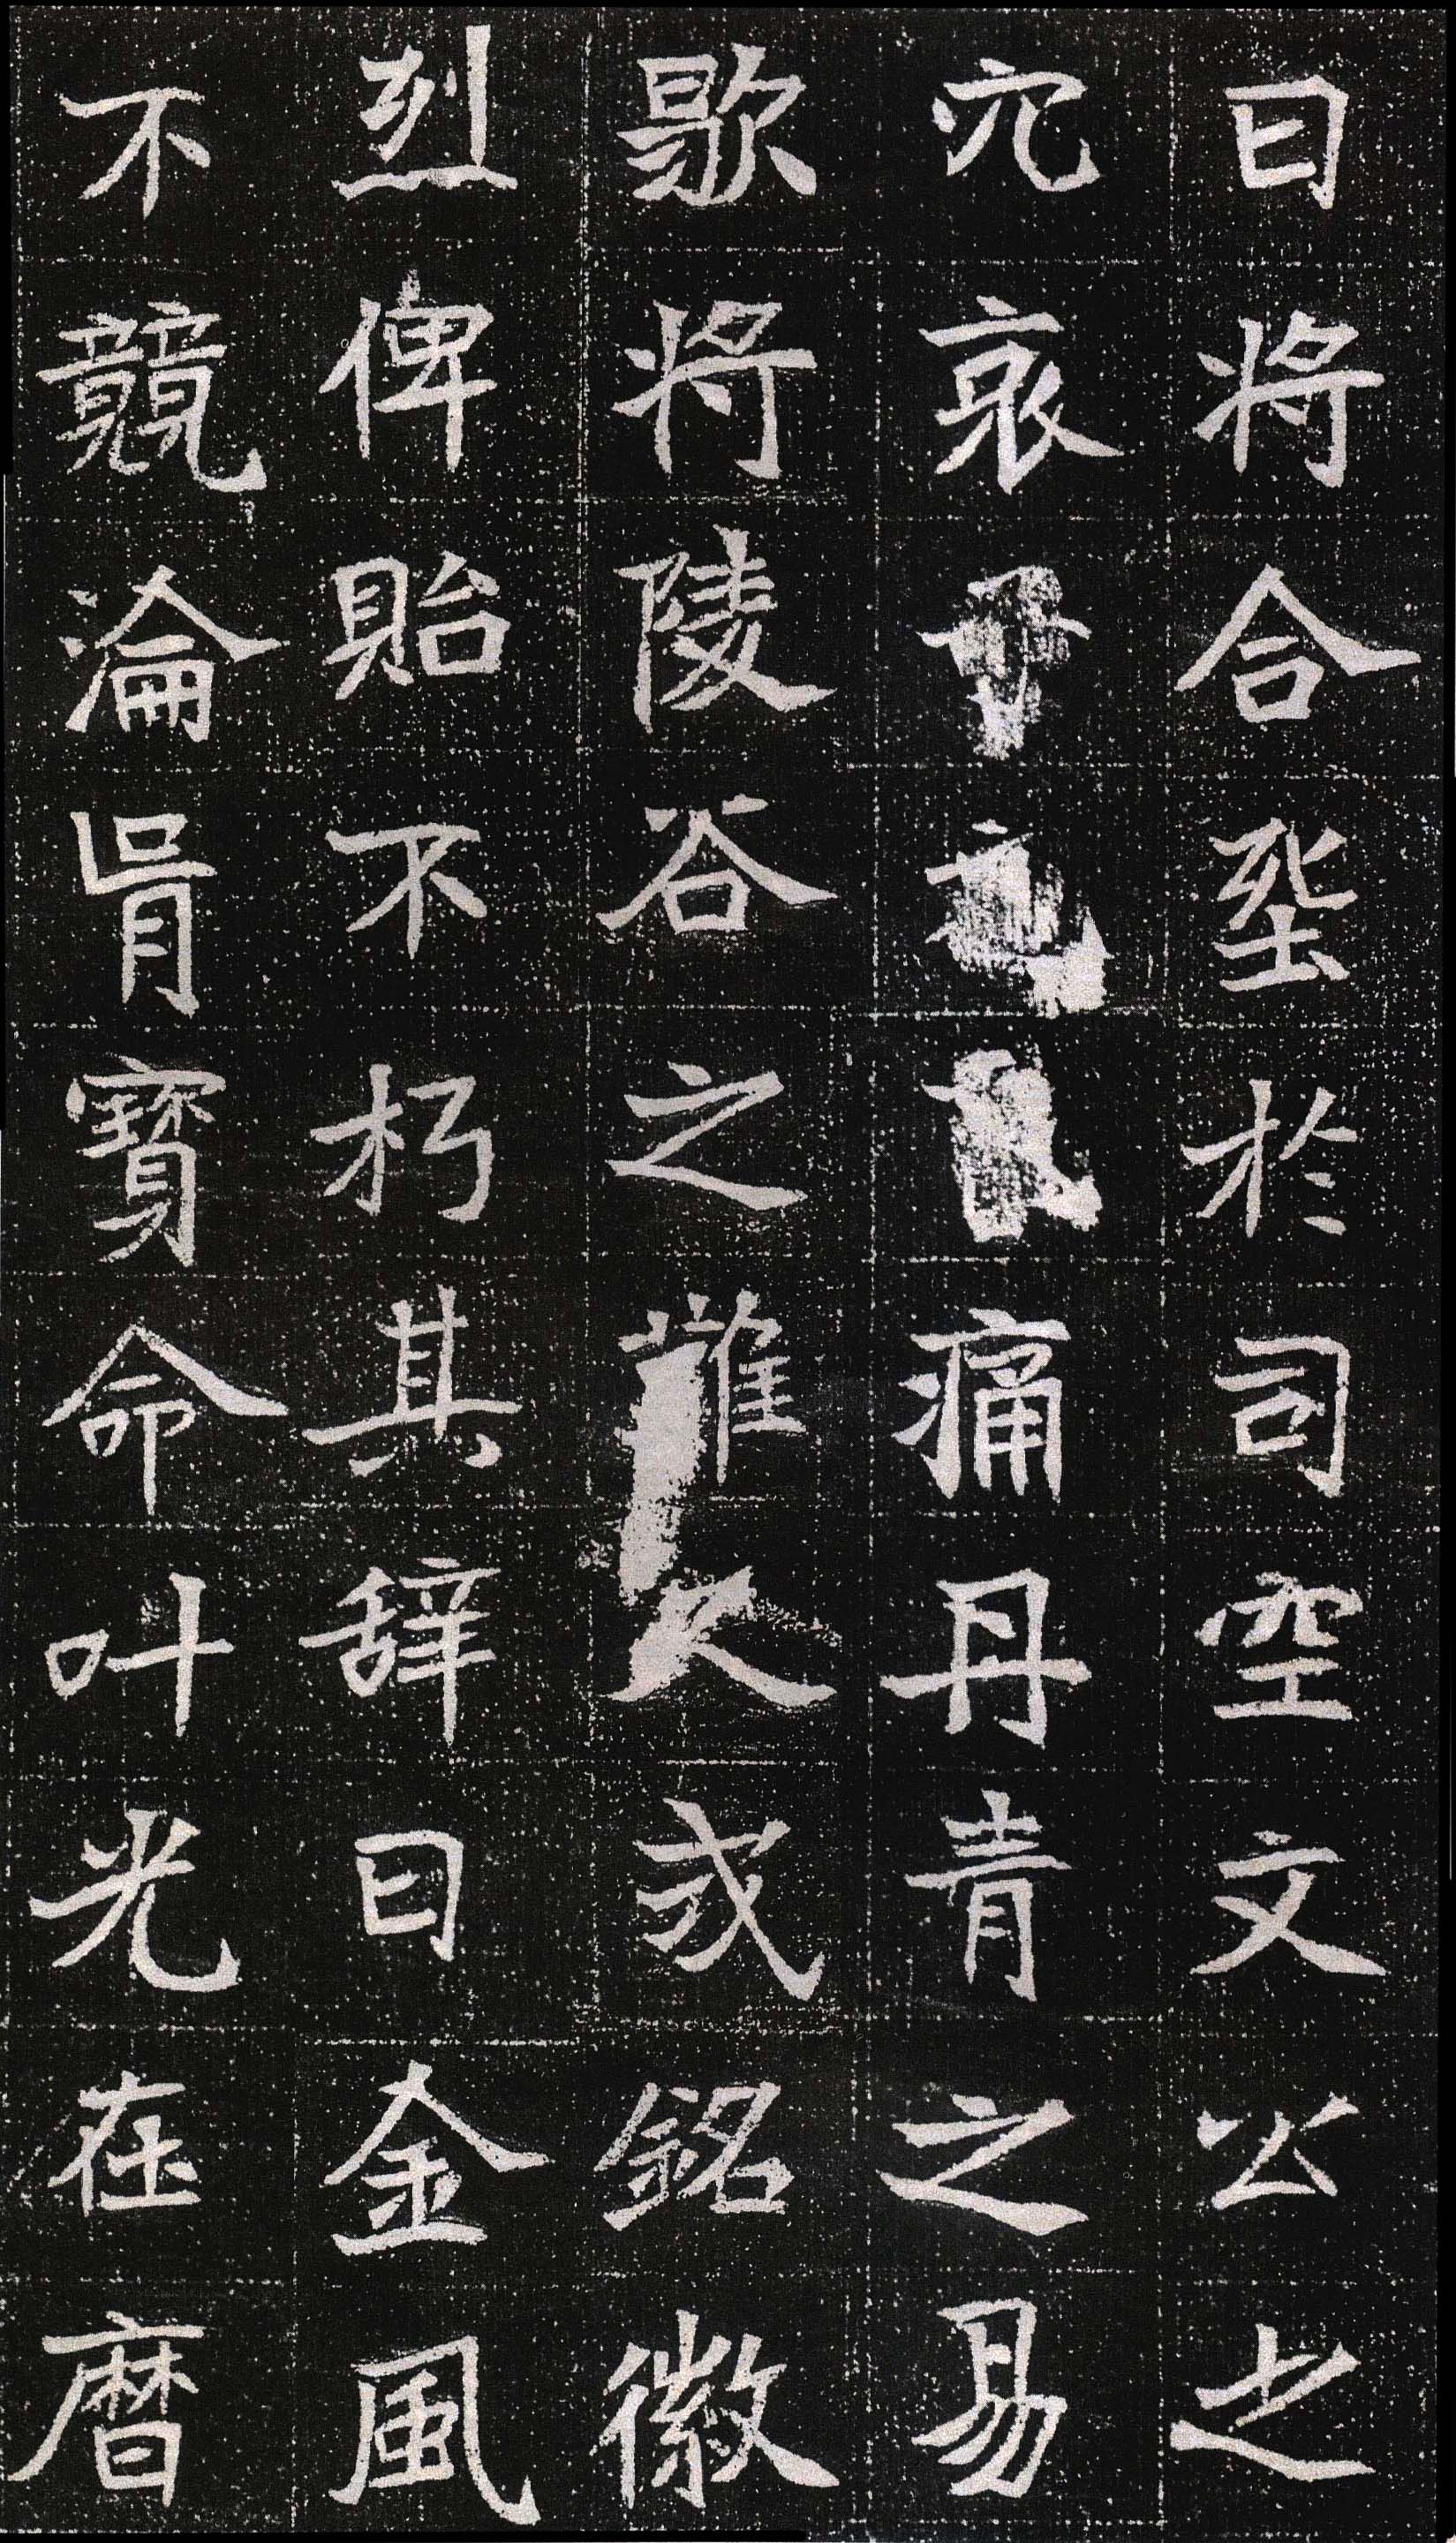 日將合葬於司空文公之
穴哀痛丹青之易
歇將陵谷之難久或銘徽
烈俾貽不朽其辞曰金風
不競淪胥寳命叶光在曆